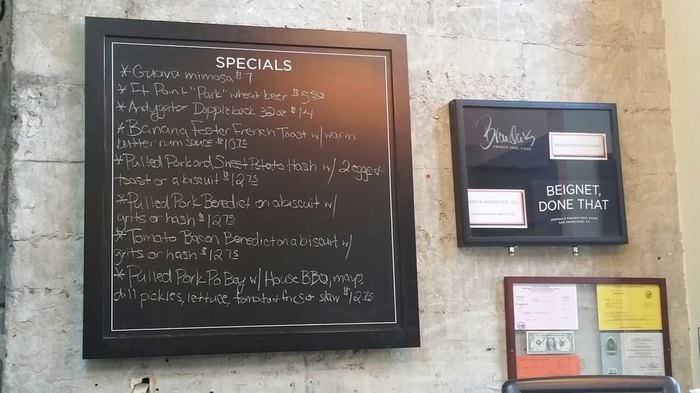 SPECIALS
* Guava mimosa $7
* Ft Point "Park" wheat beer $5.50
* Andygator Dappleback 32oz $14
* Banana Foster French Toast w/ warm
butter rum sauce $10.75
* Pulled Pork and Sweet Potato Hash w/ 2 eggs +
toast or a biscuit $12.75
* Pulled Pork Benedict on a biscuit w/
grits or hash $12.75
* Tomato Bacon Benedict on a biscuit w/
grits or hash $12.75
* Pulled Pork Po Boy w/ House BBQ, mayo,
dill pickles, lettuce, tomato + fries or slaw $12.75
Brenda's
FRENCH SOUL FOOD
BEIGNET,
DONE THAT
BRENDA'S FRENCH SOUL FOOD
SAN FRANCISCO, CA